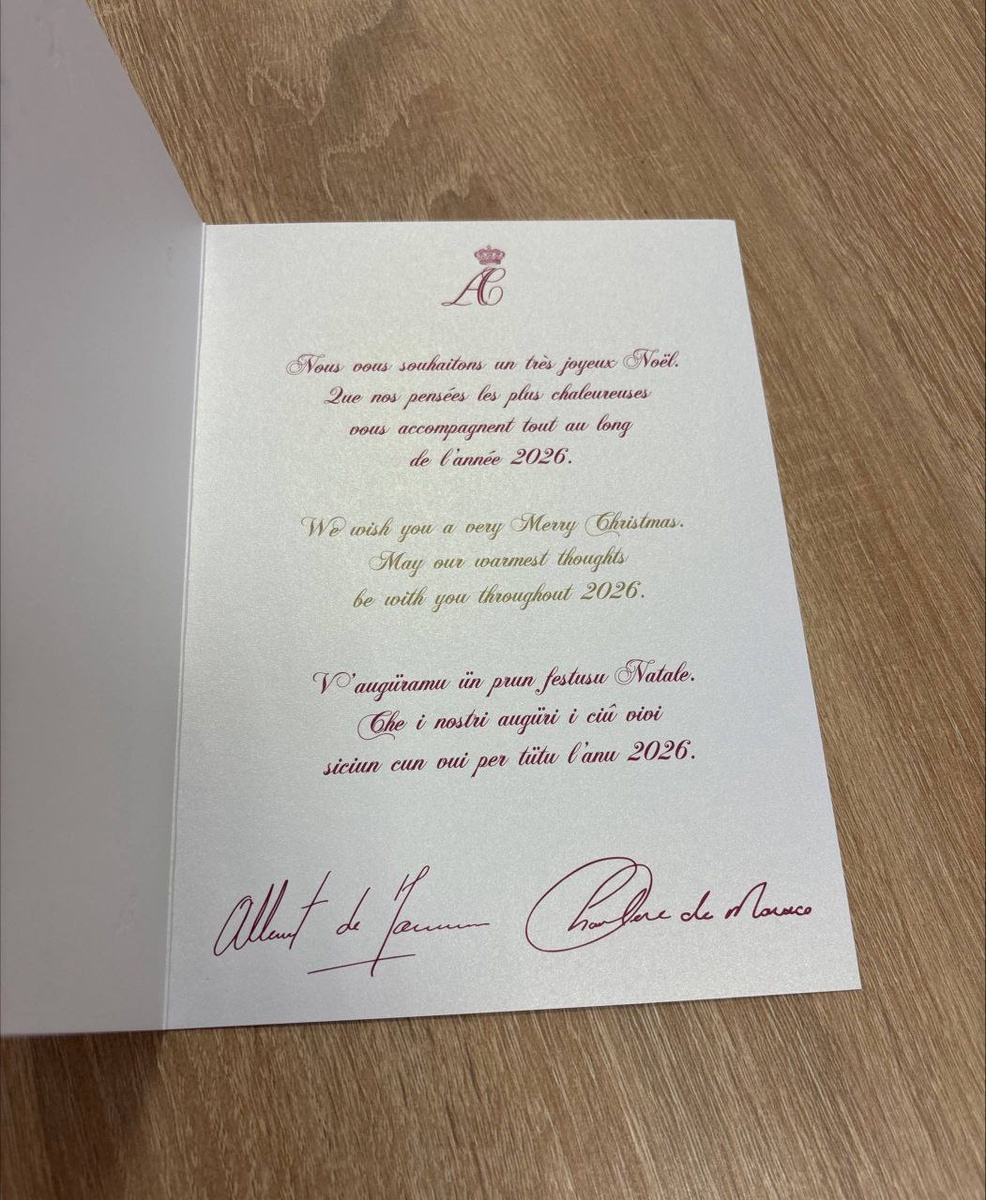 AC
Nous vous souhaitons un très joyeux Noël.
Que nos pensées les plus chaleureuses
vous accompagnent tout au long
de l'année 2026.
We wish you a very Merry Christmas.
May our warmest thoughts
be with you throughout 2026.
V'augüramu ün prun festusu Natale.
Che i nostri augüri i ciû vivi
siciun cun vui per tütu l'anu 2026.
Albert de
Charlène de Monaco